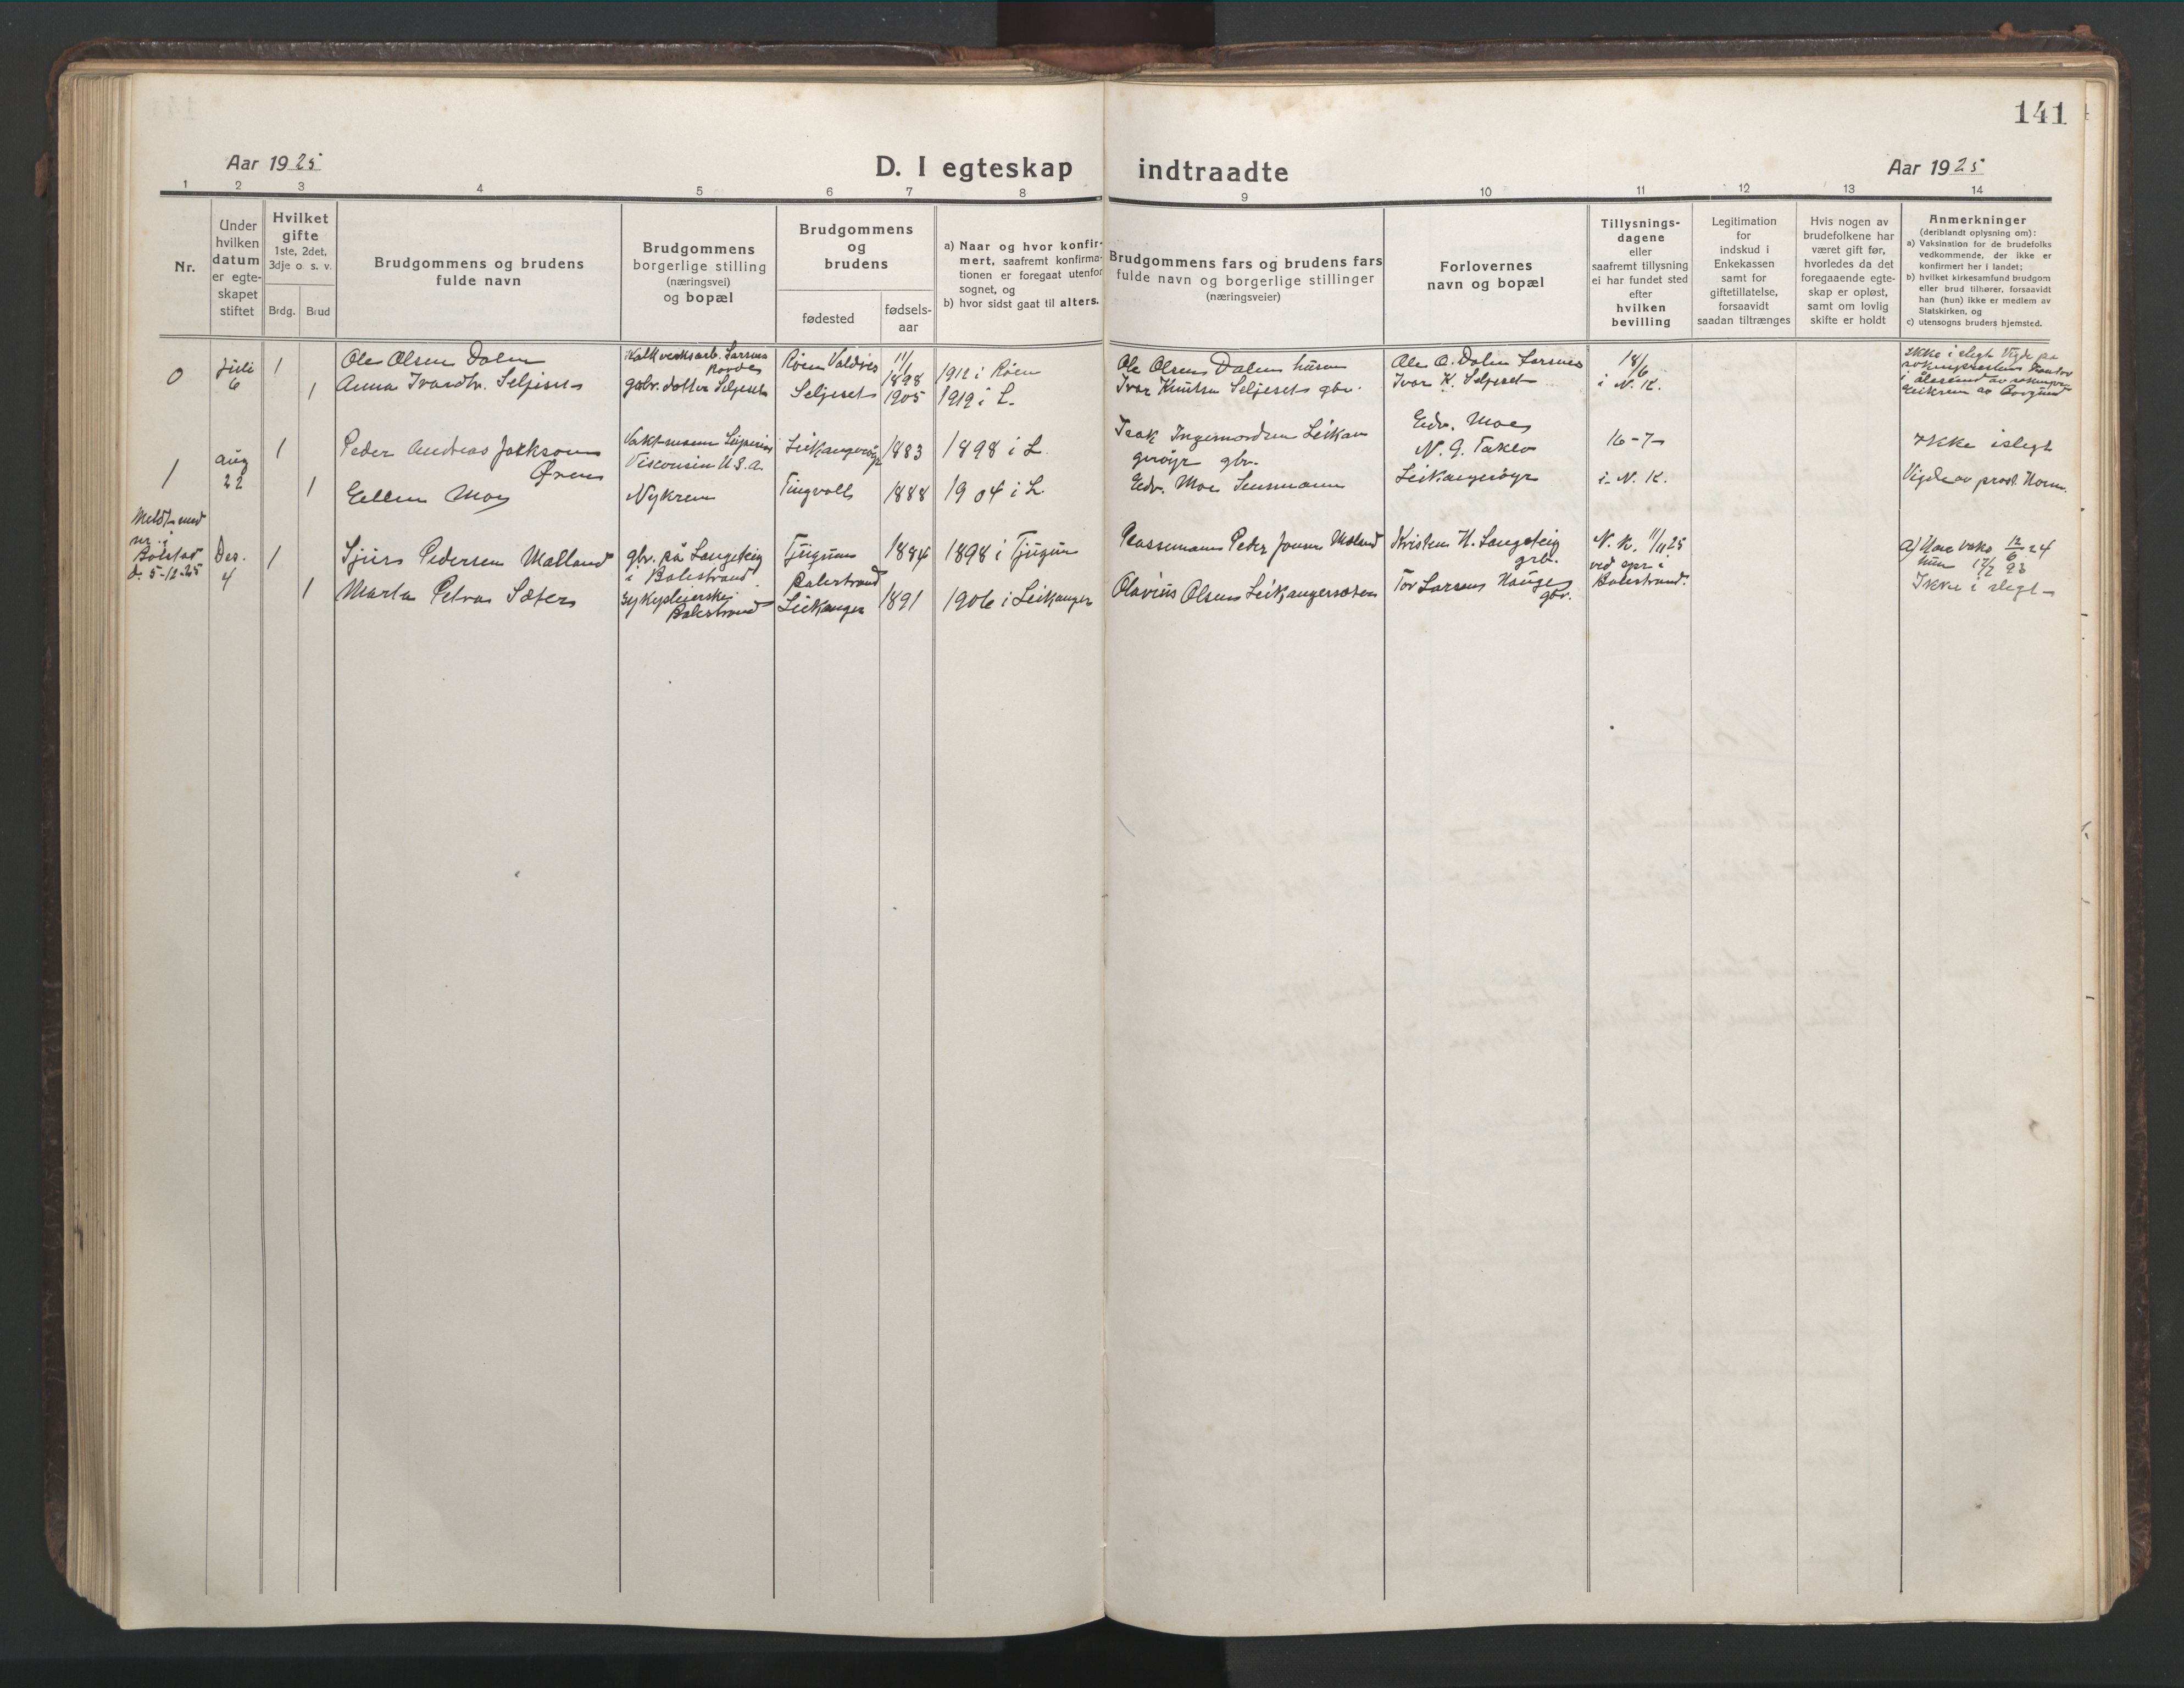 141
Aar 1925
D. I egteskap indtraadte
Aar 1925
1 2 3 4 5 6 7 8 9 10 11 12 13 14
Nr.
Under
hvilken
datum
er egte-
skapet
stiftet
Hvilket
gifte
1ste, 2det,
3dje o. s. v.
Brdg. Brud
Brudgommens og brudens
fulde navn
Brudgommens
borgerlige stilling
(næringsvei)
og bopæl
Brudgommens
og
brudens
fødested
fødsels-
aar
a) Naar og hvor konfir-
mert, saafremt konfirma-
tionen er foregaat utenfor
sognet, og
b) hvor sidst gaat til alters.
Brudgommens fars og brudens fars
fulde navn og borgerlige stillinger
(næringsveier)
Forlovernes
navn og bopæl
Tillysnings-
dagene
eller
saafremt tillysning
ei har fundet sted
efter
hvilken
bevilling
Legitimation
for
indskud i
Enkekassen
samt for
giftetillatelse,
forsaavidt
saadan tiltrænges
Hvis nogen av
brudefolkene har
været gift før,
hvorledes da det
foregaaende egte-
skap er opløst,
samt om lovlig
skifte er holdt
Anmerkninger
(deriblandt oplysning om):
a) Vaksination for de brudefolks
vedkommende, der ikke er
konfirmert her i landet;
b) hvilket kirkesamfund brudgom
eller brud tilhører, forsaavidt
han (hun) ikke er medlem av
Statskirken, og
c) utensogns bruders hjemsted.
0
Juli
6
1
Ole Olsen Dalen
Kalkverksarb. Larsnes
Røen Valdres
11/1
1898
1912 i Røen
Ole Olsen Dalen husm
Ole O. Dalen Larsnes
18/6
Ikke i slegt Vigde på
1
Anna Ivarsdtr. Seljeset
gbr. dotter Seljeset
Seljeset
1905
1919 i L.
Ivar Knutsen Seljeset gbr.
Ivar K. Seljeset
i N. K.
1
Aug
22
1
Peder Andreas Jakksom
Øren
Vaktmann Superior
Visconsin U.S.A.
Leikangerøyr
1883
1898 i L.
Isak Ingemordsen Leikan
gerøyr gbr.
Edv. Moe
N. G. Takle
16-7
Ikke i slegt
1
Ellen Moe
Nykrem
Tingvoll
1888
1904 i L.
Edv. Moe Lensmann
Leikangerøyr
i N. K.
Vigde av prost Horn.
Meldt med
nr. i
Balestad
d. 5-12-25
Des.
4
1
Sjurs Pedersen Malland
gbr. på Langeteig
i Balestrand
Tjugum
Balestrand
1884
1898 i Tjugum
Plassemann Peder Jonsen Maland
Kristen H. Langeteig
gbr.
N. K. 11/11 25
ved spr i
Balestrand.
a) Han vaks. 12/6 24
hun 12/7 93
1
Marta Petra Sæter
Sykepleierske
Balestrand
Leikanger
1891
1906 i Leikanger
Olavius Olsen Leikangersæter
Tor Larsen Hauge
gbr.
Ikke i slegt